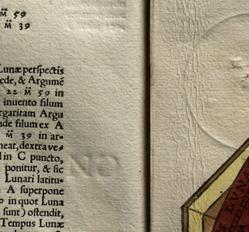 m̃ 59
m̃ 39
Lunæ perspectis
ede, & Argumē
22 m̃ 59 in
inuento filum
rgaritam Argu
nde filum ex A
m̃ 39 in ar-
neat, dextra ve-
d in C puncto,
ponitur, & sic
Lunari latitu-
A superpone
o in quot Luna
sunt) ostendit,
Tempus Lunæ